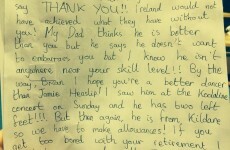 say THANK YOU!! Ireland would not
have achieved what they have without
you! My Dad thinks he is better
than you but he says he doesn't want
to embarrass you but I know he isn't
anywhere near your skill level!! By the
way, Brian I hope you're a better dancer
than Jamie Heaslip! I saw him at the Kodaline
concert on Sunday and he has two left
feet!!! But then again, he is from Kildare
so we have to make allowances! If you
get too bored with your retirement I